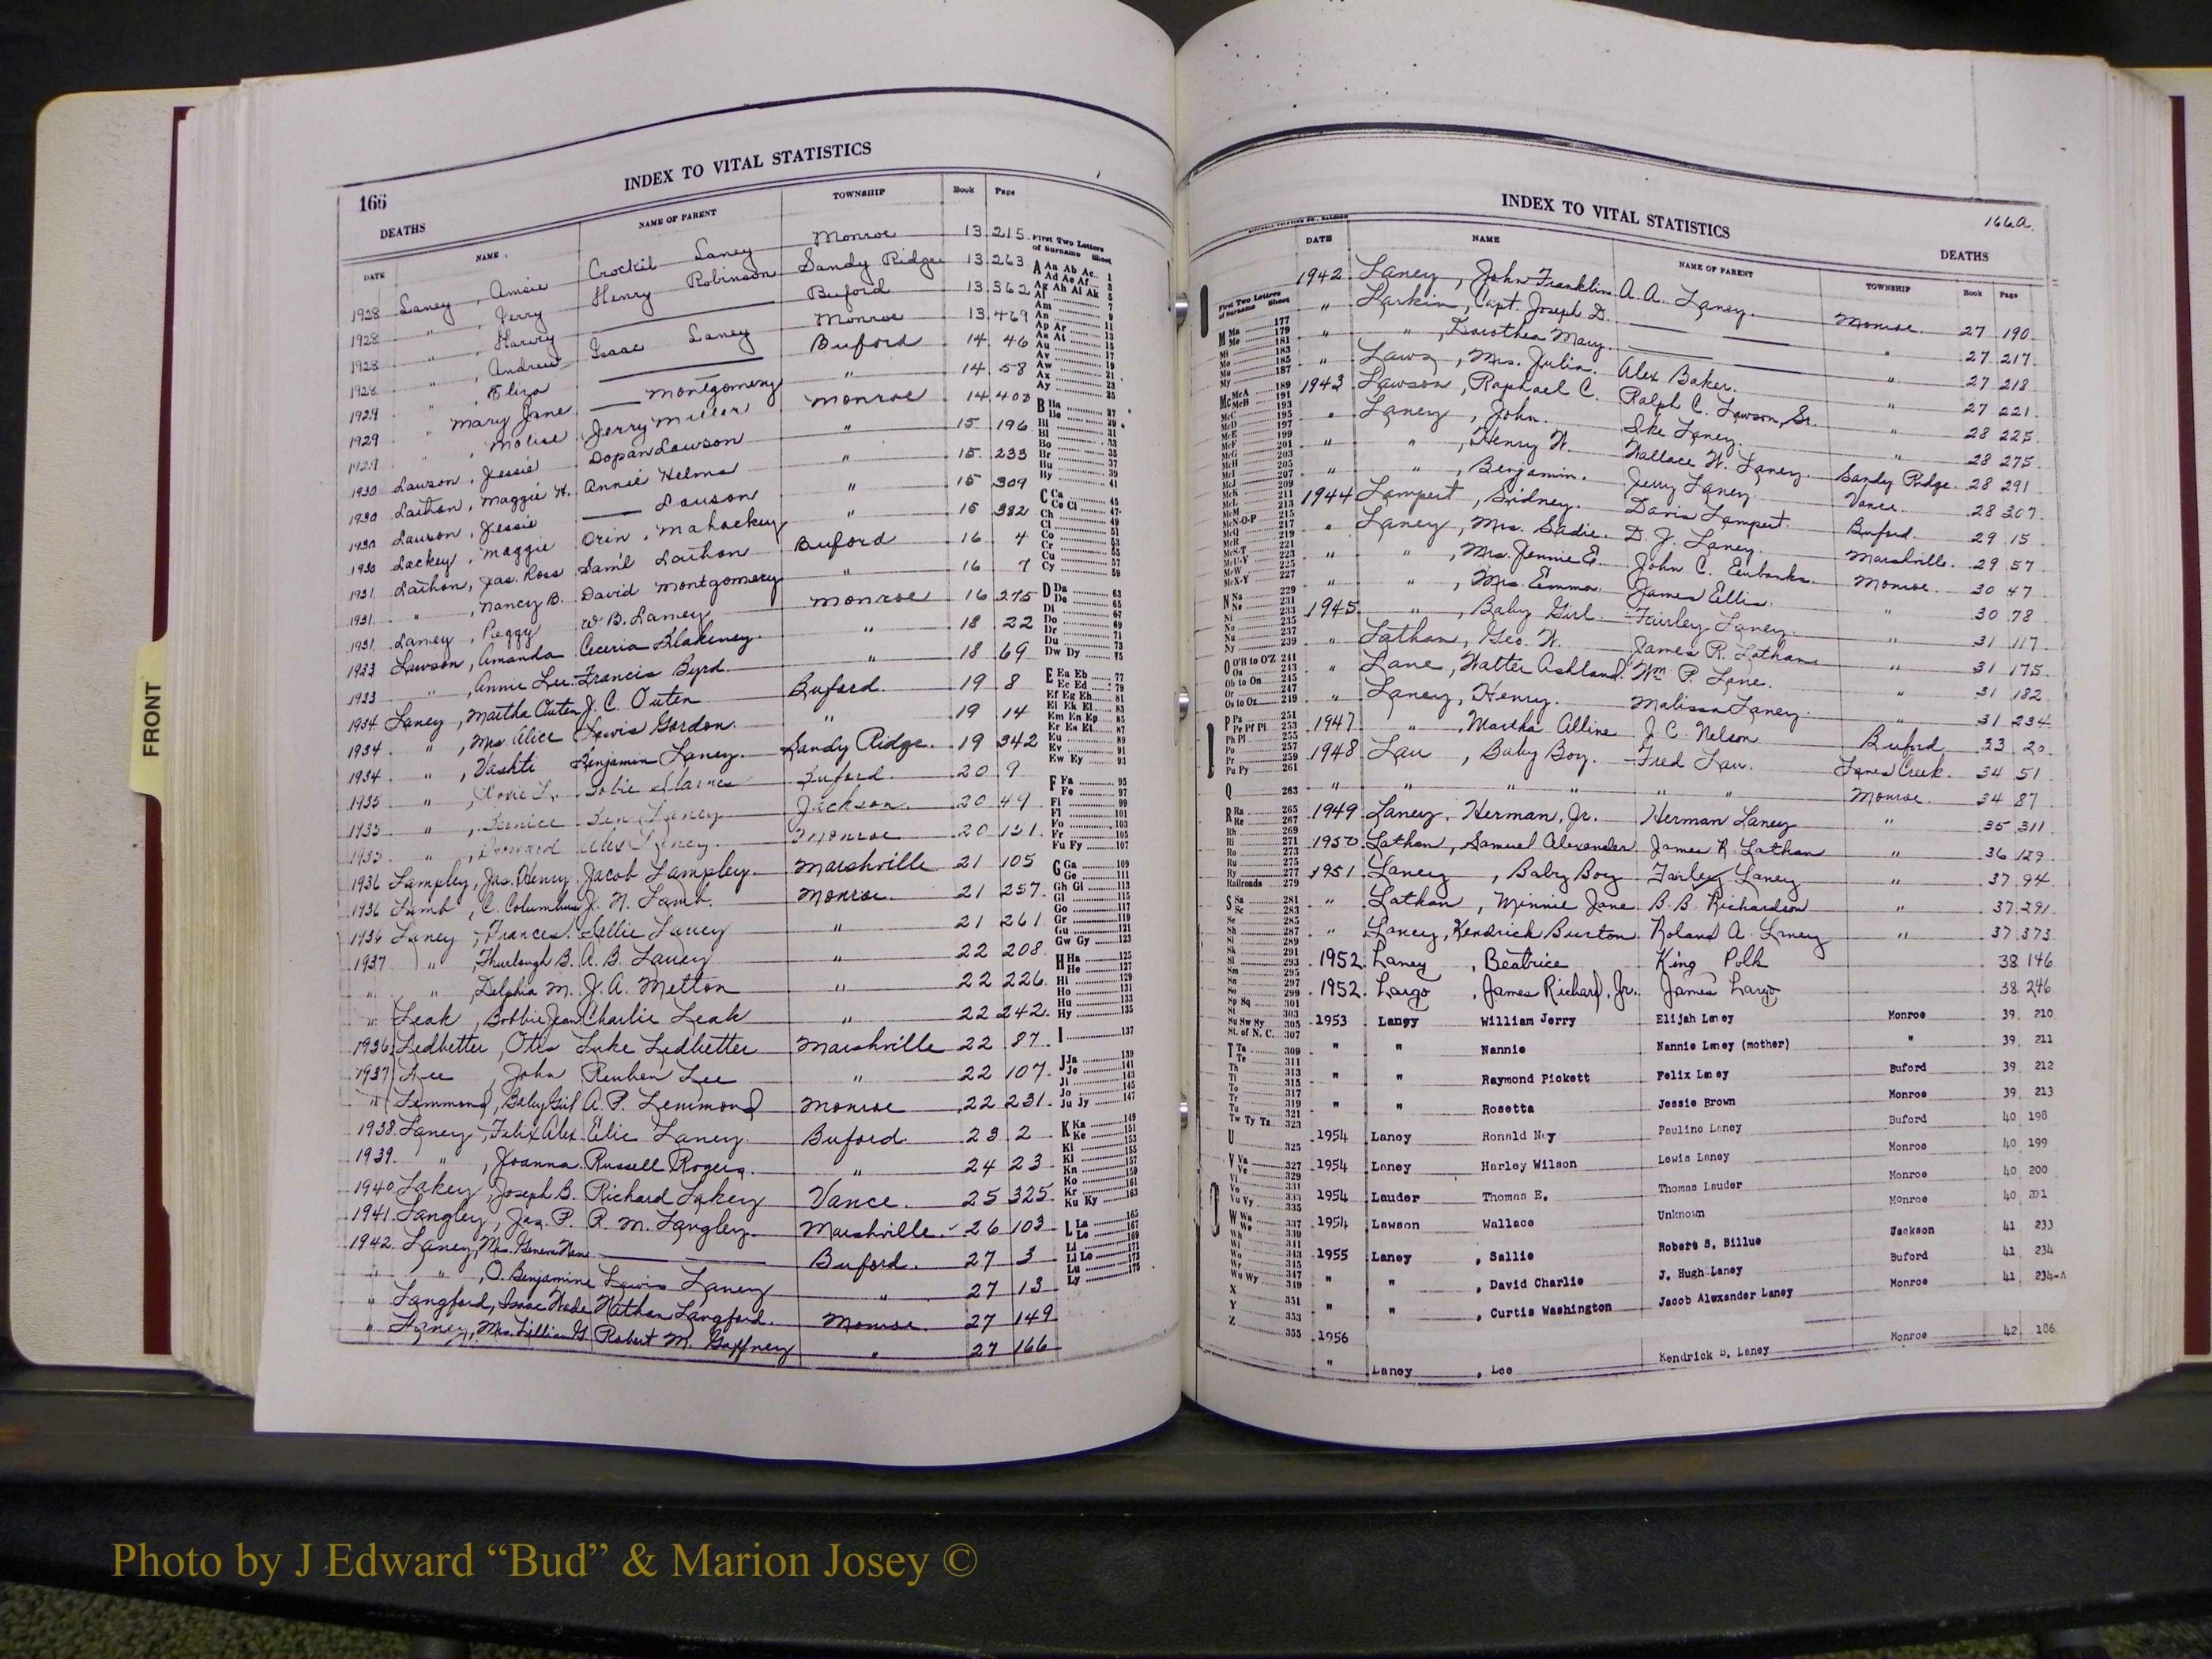 FRONT
166
INDEX TO VITAL STATISTICS
DEATHS
DATE NAME NAME OF PARENT TOWNSHIP Book Page
1928 Laney, Amsie Crockit Laney Monroe 13 215
1928 " , Jerry Henry Robinson Sandy Ridge 13 263
1928 " , Harvey Buford 13 362
1928 " , Andrew Isaac Laney Monroe 13 469
1929 " , Eliza Buford 14 46
1929 " Mary Jane Montgomery " 14 58
1929 " , Molise Jerry Miller Monroe 14 408
1930 Lawson, Jessie Dopan Lawson " 15 196
1930 Lathan, Maggie H. Annie Helms " 15 233
1930 Lawson, Jessie Lawson " 15 309
1930 Lackey, Maggie Orin, Mahackey " 15 382
1931 Lathon, Jas. Ross Sam'l Lathon Buford 16 4
1931 " , Nancy B. David Montgomery " 16 7
1931 Laney, Peggy W. B. Laney Monroe 16 275
1933 Lawson, Amanda Ceceria Blakeney " 18 22
1933 " , Annie Lee Francis Byrd " 18 69
1934 Laney, Martha Outen J. C. Outen Buford 19 8
1934 " , Mrs. Alice Lewis Gordon " 19 14
1934 " , Vashti Benjamin Laney Sandy Ridge 19 342
1935 " , Buford 20 9
1935 " , Bernice Ben Laney Jackson 20 49
1935 " , Alex Laney Monroe 20 151
1936 Lampley, Jas. Henry Jacob Lampley Marshville 21 105
1936 Lamb, C. Columbus J. N. Lamb Monroe 21 257
1936 Laney, Frances Sallie Laney " 21 261
1937 " , Thurlough B. A. B. Laney " 22 208
" " , Delphia M. J. A. Metton " 22 226
" Leak, Bobbie Jean Charlie Leak " 22 242
1936 Ledbetter, Otis Luke Ledbetter Marshville 22 87
1937 Lee , John Reuben Lee " 22 107
" Lemmond, Baby Girl A. P. Lemmond Monroe 22 231
1938 Laney, Felix Alex. Elic Laney Buford 23 2
1939 " , Joanna Russell Rogers " 24 23
1940 Lakey, Joseph B. Richard Lakey Vance 25 325
1941 Langley, Jas. P. R. M. Langley Marshville 26 103
1942 Laney, Mrs. Buford 27 3
" " , O. Benjamine Lewis Laney " 27 13
" Langford, Isaac Wade Nathan Langford Monroe 27 149
" Laney, Mrs. Lillian G. Robert M. Gaffney " 27 166
First Two Letters
of Surname Sheet
A Aa Ab Ac 1
Ad Ae Af 3
Ag Ah Ai Ak 5
Al 7
Am 9
An 11
Ap Ar 13
As At 15
Au 17
Av 19
Aw 21
Ax 23
Ay 25
B Ba 27
Be 29
Bi 31
Bl 33
Bo 35
Br 37
Bu 39
By 41
C Ca 45
Ce Ci 47
Ch 49
Cl 51
Co 53
Cr 55
Cu 57
Cy 59
D Da 63
De 65
Di 67
Do 69
Dr 71
Du 73
Dw Dy 75
E Ea Eb 77
Ec Ed 79
Ef Eg Eh 81
Ei Ek El 83
Em En Ep 85
Er Es Et 87
Eu 89
Ev 91
Ew Ey 93
F Fa 95
Fe 97
Fi 99
Fl 101
Fo 103
Fr 105
Fu Fy 107
G Ga 109
Ge 111
Gh Gi 113
Gl 115
Go 117
Gr 119
Gu 121
Gw Gy 123
H Ha 125
He 127
Hi 129
Ho 131
Hu 133
Hy 135
I 137
J Ja 139
Je 141
Ji 143
Jo 145
Ju Jy 147
K Ka 149
Ke 151
Ki 153
Kl 155
Kn 157
Ko 159
Kr 161
Ku Ky 163
L La 165
Le 167
Li 169
Ll Lo 171
Lu 173
Ly 175
INDEX TO VITAL STATISTICS
166a.
DEATHS
DATE NAME NAME OF PARENT TOWNSHIP Book Page
1942 Laney, John Franklin A. A. Laney Monroe 27 190
" Larkin, Capt. Joseph D. " 27 217
" " , Dorothea Mary " 27 218
" Laws, Mrs. Julia Alex Baker " 27 221
1943 Lawson, Raphael C. Ralph C. Lawson, Sr. " 28 225
" Laney, John Ike Laney " 28 275
" " , Henry W. Wallace W. Laney Sandy Ridge 28 291
" " , Benjamin Jerry Laney Vance 28 307
1944 Lampert, Sidney Davis Lampert Buford 29 15
" Laney, Mrs. Sadie D. J. Laney Marshville 29 57
" " , Mrs. Jennie E. John C. Eubanks Monroe 30 47
" " , Mrs. Emma James Ellis " 30 78
1945 " , Baby Girl Fairley Laney " 31 117
" Lathan, Geo. W. James R. Lathan " 31 175
" Lane, Walter Ashland Wm. P. Lane " 31 182
" Laney, Henry Malissa Laney " 31 234
1947 " , Martha Alline J. C. Nelson Buford 33 20
1948 Law , Baby Boy Fred Law Lanes Creek 34 51
" " " " " " Monroe 34 87
1949 Laney, Herman, Jr. Herman Laney " 35 311
1950 Lathan, Samuel Alexander James R. Lathan " 36 129
1951 Laney , Baby Boy Fairley Laney " 37 94
" Lathan , Minnie Jane B. B. Richardson " 37 291
" Laney, Kendrick Burton Roland A. Laney " 37 373
1952 Laney , Beatrice King Polk 38 146
1952 Largo , James Richard, Jr. James Largo 38 246
1953 Laney William Jerry Elijah Laney Monroe 39 210
" " Nannie Nannie Laney (mother) " 39 211
" " Raymond Pickett Felix Laney Buford 39 212
" " Rosetta Jessie Brown Monroe 39 213
1954 Laney Ronald Ney Pauline Laney Buford 40 198
1954 Laney Harley Wilson Lewis Laney Monroe 40 199
1954 Lauder Thomas E. Thomas Lauder Monroe 40 200
1954 Lawson Wallace Unknown Monroe 40 201
1955 Laney , Sallie Robert S. Billue Jackson 41 233
" " , David Charlie J. Hugh Laney Buford 41 234
" " , Curtis Washington Jacob Alexander Laney Monroe 41 234-A
1956
" Laney , Lee Kendrick B. Laney Monroe 42 186
First Two Letters
of Surname Sheet
M Ma 177
Me 179
Mi 181
Mo 183
Mu 185
My 187
Mc McA 189
McH 191
McC 193
McD 195
McE 197
McF 199
McG 201
McH 203
McI 205
McJ 207
McK 209
McL 211
McM 213
McN-O-P 215
McQ 217
McR 219
McS-T 221
McU-V 223
McW 225
McX-Y 227
N Na 229
Ne 231
Ni 233
No 235
Nu 237
Ny 239
O O'B to O'Z 241
Oa 243
Ob to On 245
Or 247
Os to Oz 249
P Pa 251
Pe Pf Pi 253
Ph Pl 255
Po 257
Pr 259
Pu Py 261
Q 263
R Ra 265
Re 267
Rh 269
Ri 271
Ro 273
Ru 275
Ry 277
Railroads 279
S Sa 281
Sc 283
Se 285
Sh 287
Si 289
Sk 291
Sl 293
Sm 295
Sn 297
So 299
Sp Sq 301
St 303
Su Sw Sy 305
St. of N. C. 307
T Ta 309
Te 311
Th 313
Ti 315
To 317
Tr 319
Tu 321
Tw Ty Tz 323
U 325
V Va 327
Ve 329
Vi 331
Vo 333
Vu Vy 335
W Wa 337
We 339
Wh 341
Wi 343
Wo 345
Wr 347
Wu Wy 349
X 351
Y 353
Z 355
Photo by J Edward “Bud” & Marion Josey ©